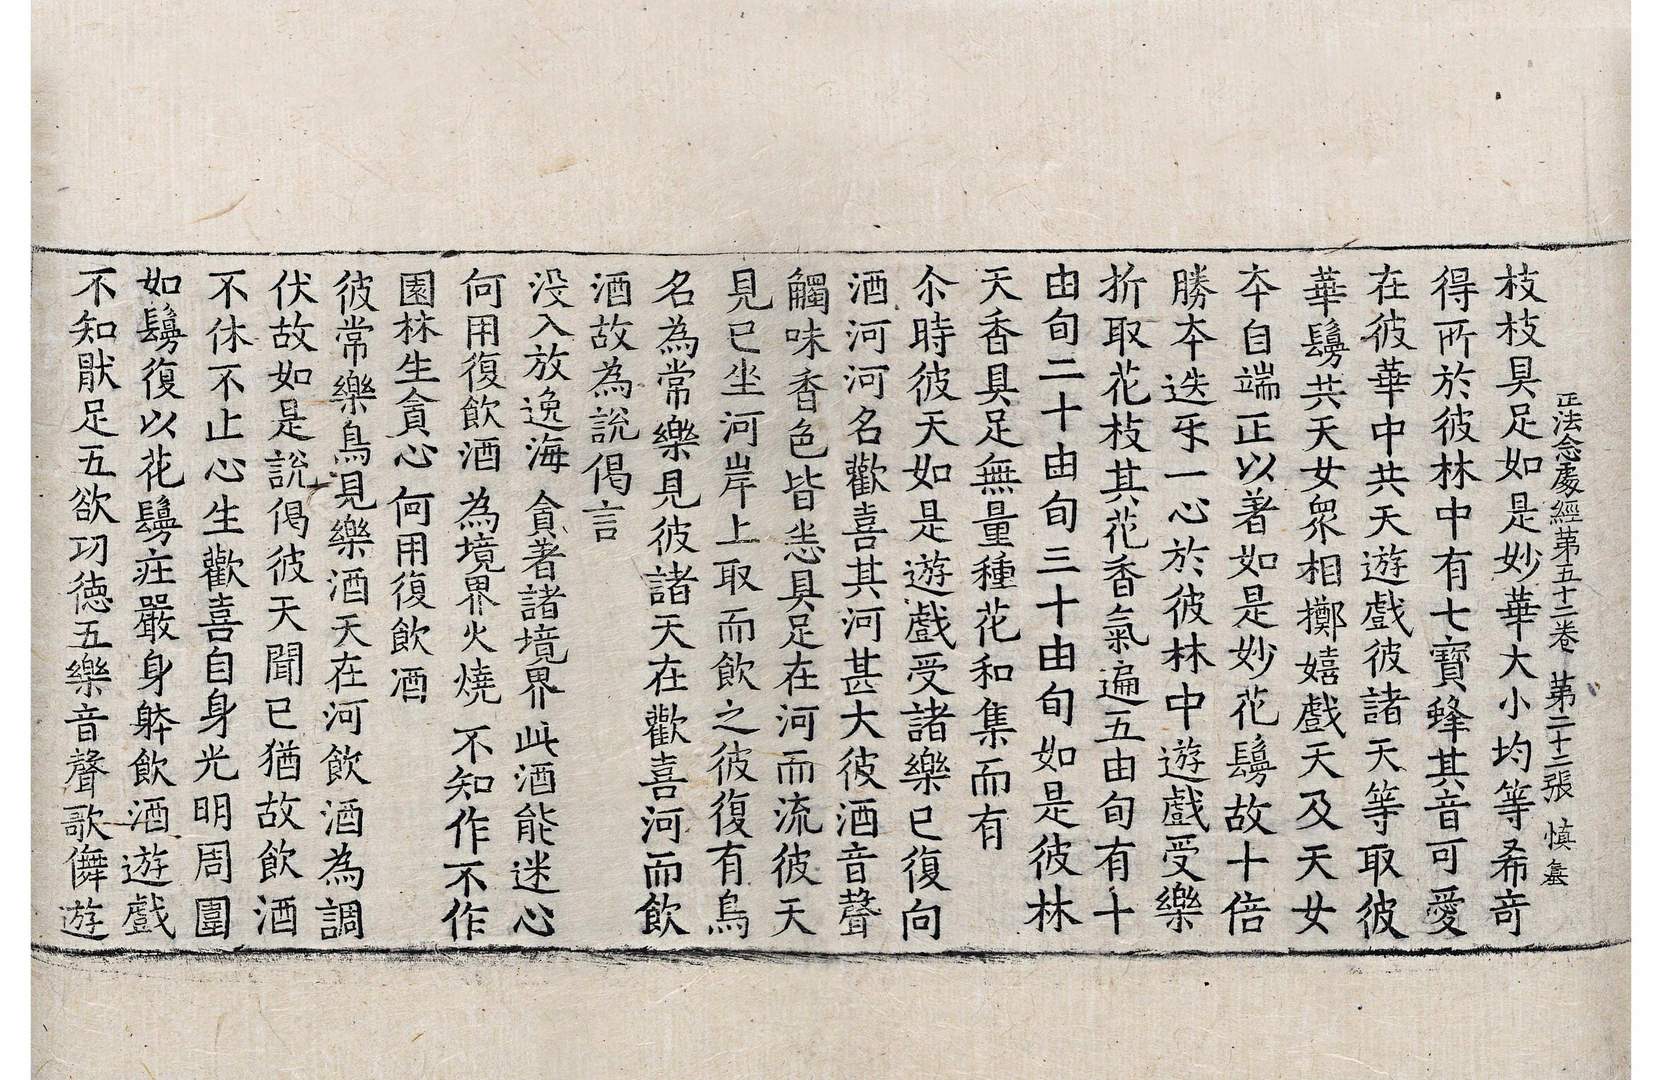 正法念處經第五十二卷 第二十二張 慎
枝枝具足如是妙華大小均等希奇
得所於彼林中有七寶蜂其音可愛
在彼華中共天遊戲彼諸天等取彼
華鬘共天女眾相擲嬉戲天及天女
夲自端正以著如是妙花鬘故十倍
勝夲迭㸦一心於彼林中遊戲受樂
折取花枝其花香氣遍五由旬有十
由旬二十由旬三十由旬如是彼林
天香具足無量種花和集而有
尒時彼天如是遊戲受諸樂已復向
酒河河名歡喜其河甚大彼酒音聲
觸味香色皆悉具足在河而流彼天
見已坐河岸上取而飲之彼復有鳥
名為常樂見彼諸天在歡喜河而飲
酒故為說偈言
没入放逸海 貪著諸境界 此酒能迷心
何用復飲酒 為境界火燒 不知作不作
園林生貪心 何用復飲酒
彼常樂鳥見樂酒天在河飲酒為調
伏故如是說偈彼天聞已猶故飲酒
不休不止心生歡喜自身光明周圍
如鬘復以花鬘疘嚴身躰飲酒遊戲
不知猒足五欲功徳五樂音聲歌儛遊